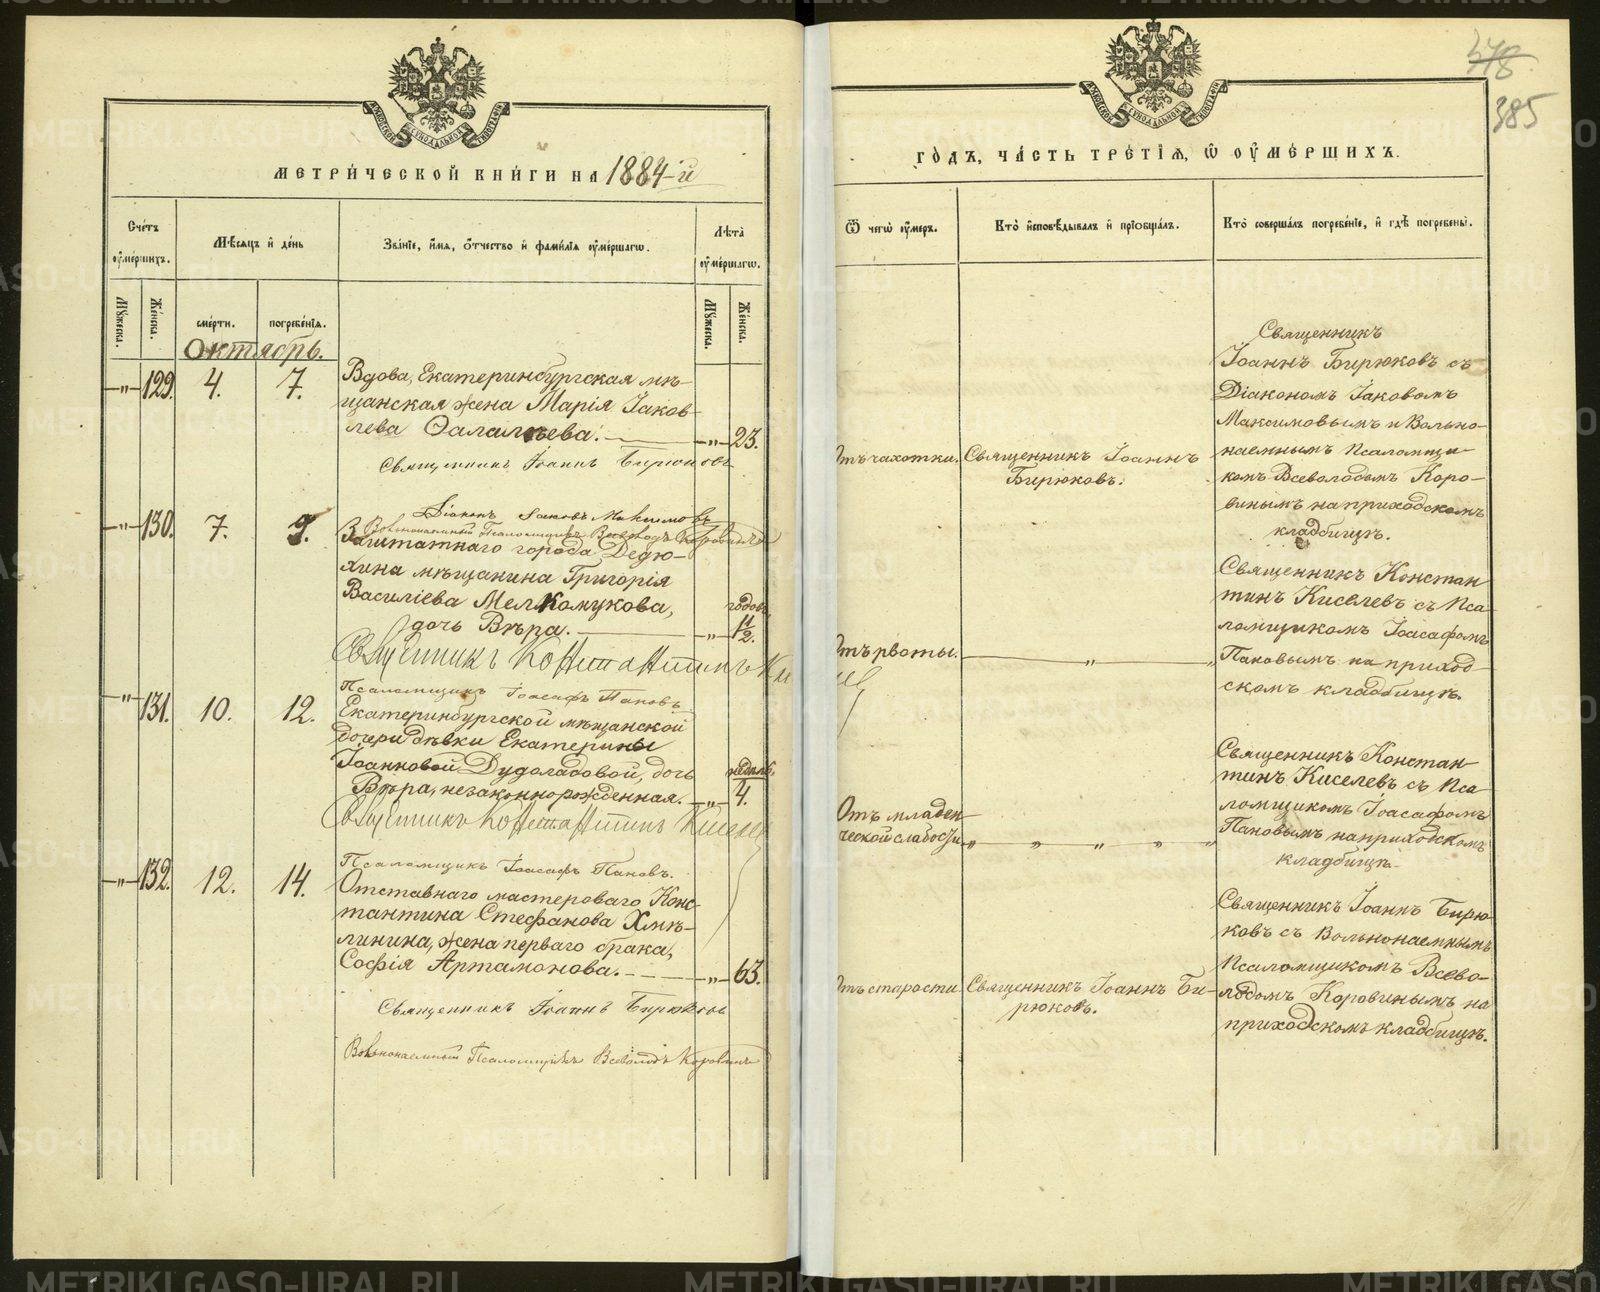 МЕТРИ́ЧЕСКОЙ КНИ́ГИ НА 1884-й
Счéтъ ѹ҆мéршихъ.
Мѣ́сяцъ и҆ дéнь
Звáнїе, и҆́мя, ѻ҆́тчество и҆ фами́лїя ѹ҆мéршагѡ.
Лѣ́та ѹ҆мéршагѡ.
Мꙋ́жеска.
Жéнска.
смéрти.
погребéнїя.
Мꙋ́жеска.
Жéнска.
Октябрь.
-"- 129. 4. 7. Вдова, Екатеринбургская мѣ-
щанская жена Марія Іаков-
лева Ѳалалѣева. -"- 23.
Священникъ Іоаннъ Бирюковъ
Діаконъ Іаковъ Максимовъ
Вольнонаемный Псаломщикъ Всеволодъ Коровинъ
-"- 130. 7. 9. Заштатнаго города Дедю-
хина мѣщанина Григорія
Василіева Мелкомукова, годовъ
дочь Вѣра. -"- 1 1/2.
Священникъ Константинъ Ки
Псаломщикъ Іоасафъ Пановъ
-"- 131. 10. 12. Екатеринбургской мѣщанской
дочери дѣвки Екатерины
Іоанновой Дудоладовой, дочь недѣль
Вѣра, незаконнорожденная. -"- 4.
Священникъ Константинъ Киселевъ
Псаломщикъ Іоасафъ Пановъ.
-"- 132. 12. 14. Отставнаго мастероваго Конс-
тантина Стефанова Хмѣ-
линина, жена перваго брака,
Софія Артамонова. -"- 63.
Священникъ Іоаннъ Бирюковъ
Вольнонаемный Псаломщикъ Всеволодъ Коровинъ
378
385
ГÓДЪ, ЧÁСТЬ ТРÉТЇѦ, Ѽ ОУ҆МÉРШИХЪ.
Ѿ чегѡ̀ ѹ҆́меръ.
Ктò и҆сповѣ́дывалъ и҆ прїѻбщáлъ.
Ктò совершáлъ погребéнїе, и҆ гдѣ̀ погребены̀.
отъ чахотки.
Священникъ Іоаннъ
Бирюковъ.
Священникъ
Іоаннъ Бирюковъ съ
Діакономъ Іаковомъ
Максимовымъ и Вольно-
наемнымъ Псаломщи-
комъ Всеволодомъ Коро-
винымъ на приходскомъ
кладбищѣ.
отъ рвоты. " "
ше
Священникъ Констан
тинъ Киселевъ съ Пса
ломщикомъ Іоасафомъ
Пановымъ на приход
скомъ кладбищѣ.
Отъ младен-
ческой слабости. " " " " "
Священникъ Констан
тинъ Киселевъ съ Пса
ломщикомъ Іоасафомъ
Пановымъ на приходскомъ
кладбищѣ.
отъ старости
Священникъ Іоаннъ Би-
рюковъ.
Священникъ Іоаннъ Бирю-
ковъ съ Вольнонаемнымъ
Псаломщикомъ Всево-
лодомъ Коровинымъ на
приходскомъ кладбищѣ.
METRIKI.GASO-URAL.RU